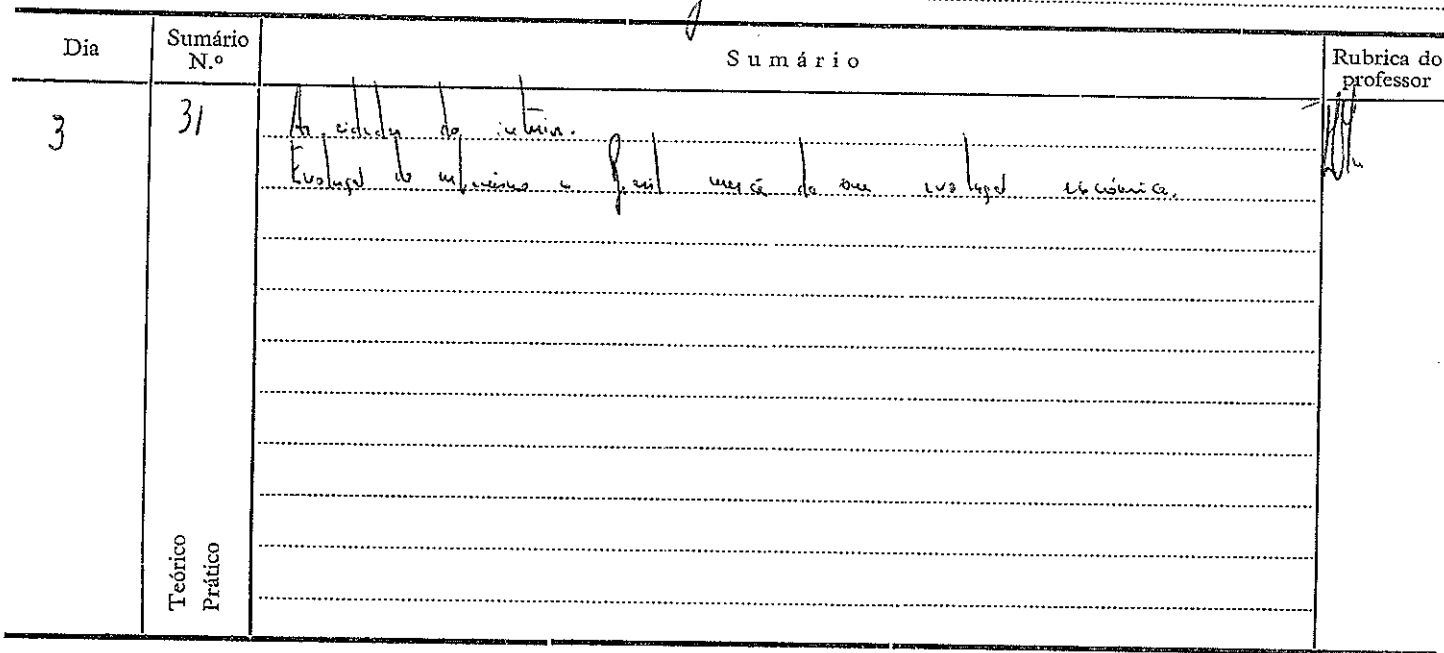 Dia
Sumário N.º
Sumário
Rubrica do professor
3
31
As cidades do interior.
Evolução do urbanismo no Brasil mercê da sua evolução económica.
Teórico
Prático